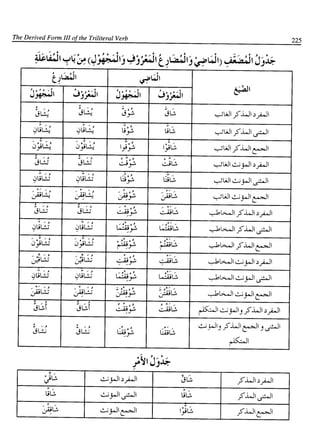 The Derived Form III of the Triliteral Verb 225
جَدْوَلُ الْمُضَعَّفِ (الْمَاضِي وَالْمُضَارِعِ الْمَعْرُوفِ وَالْمَجْهُولِ) مِنْ بَابِ الْمُفَاعَلَةِ
الصِّيَغ الْمَاضِي الْمُضَارِع
الْمَعْرُوف الْمَجْهُول الْمَعْرُوف الْمَجْهُول
المفرد المذكر الغائب شَاقَّ شُوْقَّ يُشَاقُّ يُشَاقُّ
المثنى المذكر الغائب شَاقَّا شُوْقَّا يُشَاقَّانِ يُشَاقَّانِ
الجمع المذكر الغائب شَاقُّوا شُوْقُّوا يُشَاقُّونَ يُشَاقُّونَ
المفرد المؤنث الغائب شَاقَّتْ شُوْقَّتْ تُشَاقُّ تُشَاقُّ
المثنى المؤنث الغائب شَاقَّتَا شُوْقَّتَا تُشَاقَّانِ تُشَاقَّانِ
الجمع المؤنث الغائب شَاقَقْنَ شُوْقِقْنَ يُشَاقِقْنَ يُشَاقَقْنَ
المفرد المذكر المخاطب شَاقَقْتَ شُوْقِقْتَ تُشَاقُّ تُشَاقُّ
المثنى المذكر المخاطب شَاقَقْتُمَا شُوْقِقْتُمَا تُشَاقَّانِ تُشَاقَّانِ
الجمع المذكر المخاطب شَاقَقْتُمْ شُوْقِقْتُمْ تُشَاقُّونَ تُشَاقُّونَ
المفرد المؤنث المخاطب شَاقَقْتِ شُوْقِقْتِ تُشَاقِّينَ تُشَاقِّينَ
المثنى المؤنث المخاطب شَاقَقْتُمَا شُوْقِقْتُمَا تُشَاقَّانِ تُشَاقَّانِ
الجمع المؤنث المخاطب شَاقَقْتُنَّ شُوْقِقْتُنَّ تُشَاقِقْنَ تُشَاقَقْنَ
المفرد المذكر والمؤنث المتكلم شَاقَقْتُ شُوْقِقْتُ أُشَاقُّ أُشَاقُّ
المثنى والجمع المذكر والمؤنث المتكلم شَاقَقْنَا شُوْقِقْنَا نُشَاقُّ نُشَاقُّ
جَدْوَلُ الْأَمْرِ
المفرد المذكر شَاقَّ المفرد المؤنث شَاقِّي
المثنى المذكر شَاقَّا المثنى المؤنث شَاقَّا
الجمع المذكر شَاقُّوا الجمع المؤنث شَاقِقْنَ